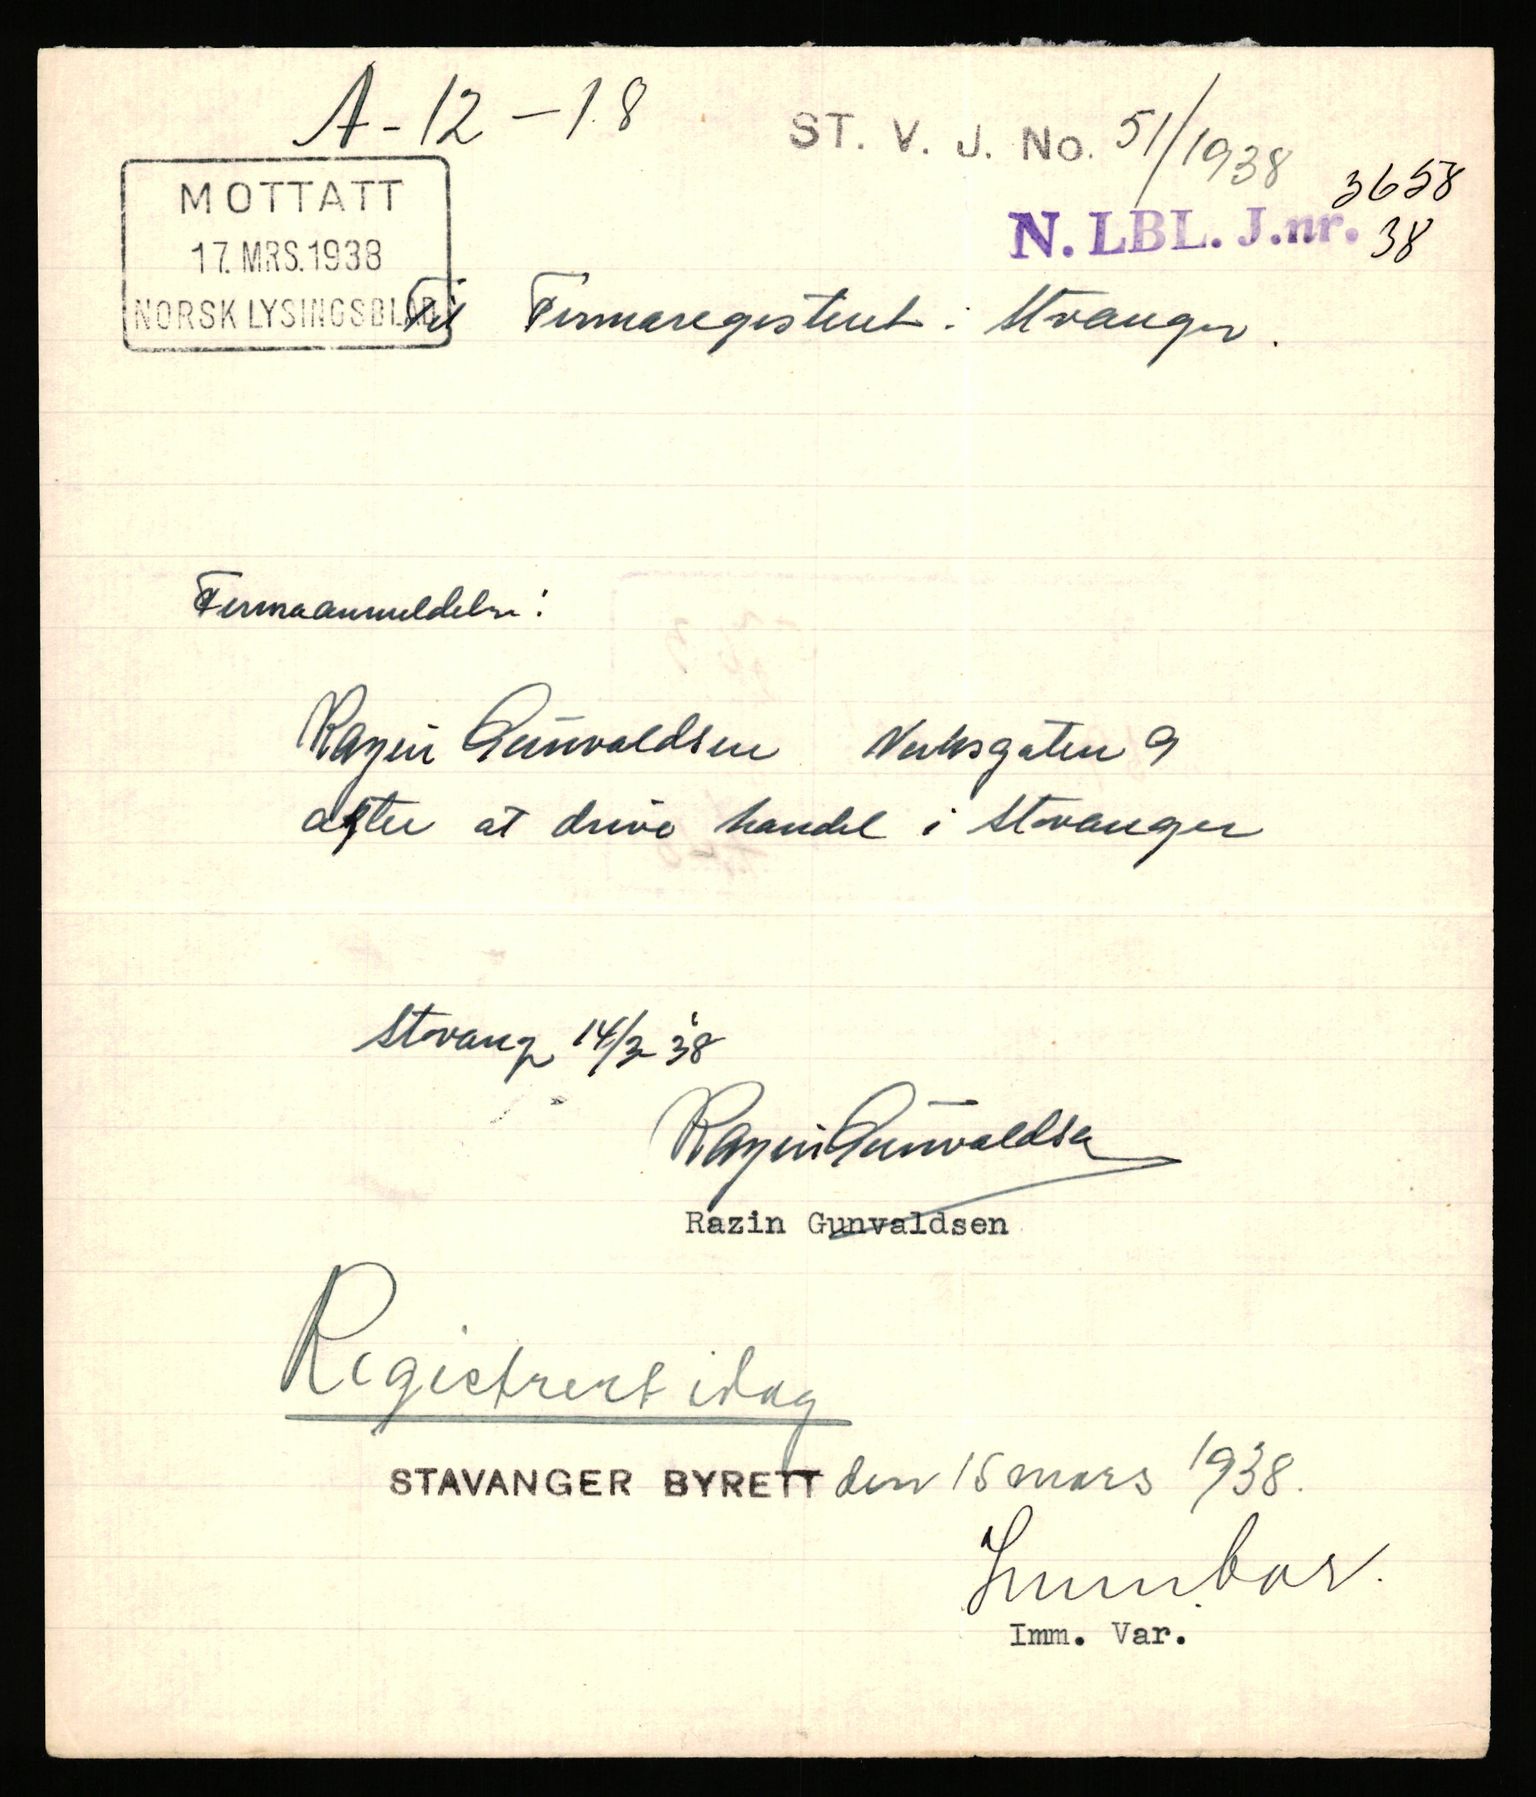 A-12-1.8
ST. V. J. No. 51/1938
MOTTATT
17. MRS. 1938
NORSK LYSINGSBLAD
N. LBL. J.nr. 3658
38
Til Firmaregisteret i Stvanger.
Firmaanmeldelse:
Razin Gunvaldsen Verksgaten 9
agter at drive handel i Stvanger
Stvang 14/3 38
Razin Gunvaldsen
Razin Gunvaldsen
Registrert idag
STAVANGER BYRETT den 15 mars 1938.
Imm. Var.